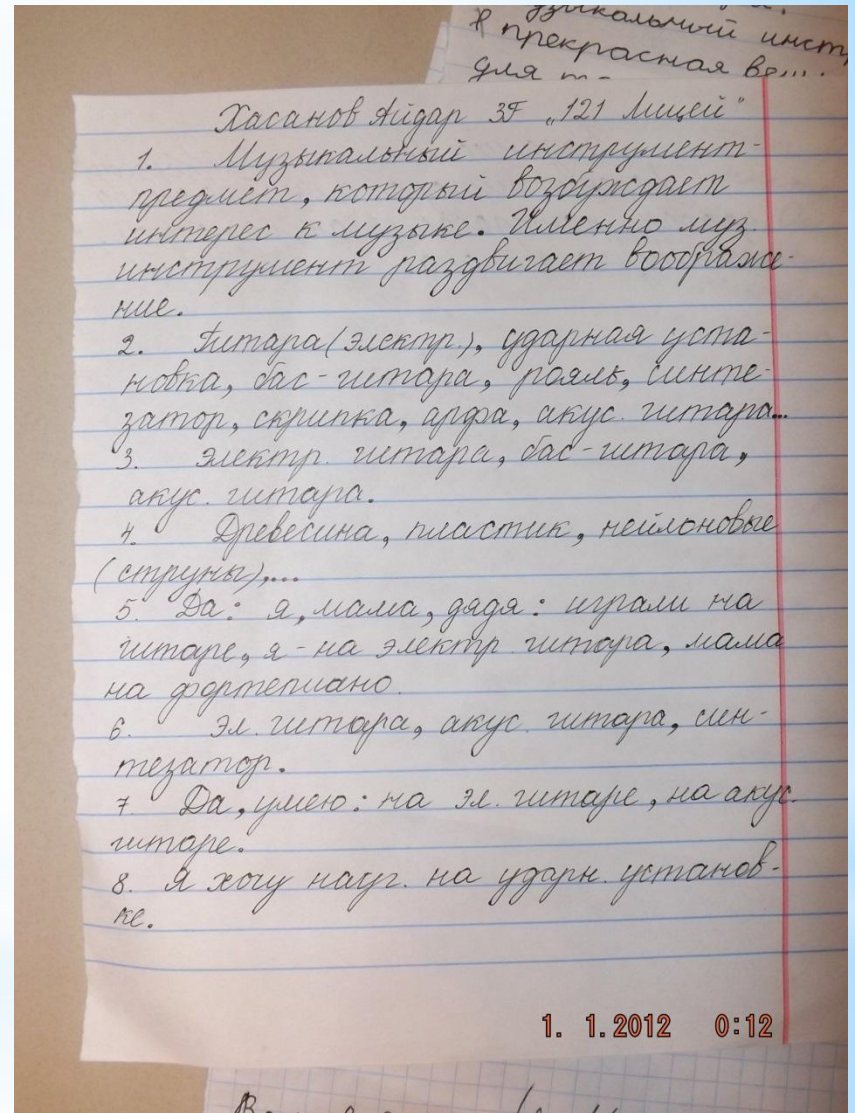 узыкальный инст
я прекрасная ве
для
Хасанов Айдар 3Г „121 Лицей"
1. Музыкальный инструмент-
предмет, который возбуждает
интерес к музыке. Именно муз.
инструмент раздвигает воображе-
ние.
2. Гитара (электр.), ударная уста-
новка, бас-гитара, рояль, синте-
затор, скрипка, арфа, акус. гитара...
3. Электр. гитара, бас-гитара,
акус. гитара.
4. Древесина, пластик, нейлоновые
(струны),...
5. Да: я, мама, дядя: играли на
гитаре, я - на электр. гитара, мама
на фортепиано.
6. Эл. гитара, акус. гитара, син-
тезатор.
7. Да, умею: на эл. гитаре, на акус.
гитаре.
8. Я хочу науч. на ударн. установ-
ке.
1. 1.2012 0:12